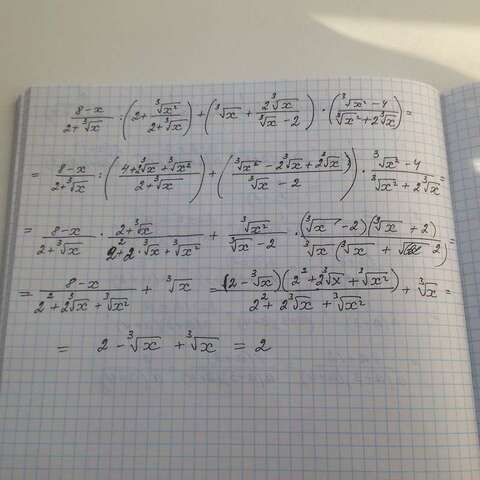 \frac{8-x}{2+\sqrt[3]{x}} : \left(2+\frac{\sqrt[3]{x^2}}{2+\sqrt[3]{x}}\right)+\left(\sqrt[3]{x}+\frac{2\sqrt[3]{x}}{\sqrt[3]{x}-2}\right)\cdot\left(\frac{\sqrt[3]{x^2}-4}{\sqrt[3]{x^2}+2\sqrt[3]{x}}\right)=
=\frac{8-x}{2+\sqrt[3]{x}}:\left(\frac{4+2\sqrt[3]{x}+\sqrt[3]{x^2}}{2+\sqrt[3]{x}}\right)+\left(\frac{\sqrt[3]{x^2}-2\sqrt[3]{x}+2\sqrt[3]{x}}{\sqrt[3]{x}-2}\right)\cdot\frac{\sqrt[3]{x^2}-4}{\sqrt[3]{x^2}+2\sqrt[3]{x}}=
=\frac{8-x}{2+\sqrt[3]{x}}\cdot\frac{2+\sqrt[3]{x}}{2^2+2\cdot\sqrt[3]{x}+\sqrt[3]{x^2}}+\frac{\sqrt[3]{x^2}}{\sqrt[3]{x}-2}\cdot\frac{(\sqrt[3]{x}-2)(\sqrt[3]{x}+2)}{\sqrt[3]{x}(\sqrt[3]{x}+2)}=
=\frac{8-x}{2^2+2\sqrt[3]{x}+\sqrt[3]{x^2}}+\sqrt[3]{x}=\frac{(2-\sqrt[3]{x})(2^2+2\sqrt[3]{x}+\sqrt[3]{x^2})}{2^2+2\sqrt[3]{x}+\sqrt[3]{x^2}}+\sqrt[3]{x}=
=2-\sqrt[3]{x}+\sqrt[3]{x}=2